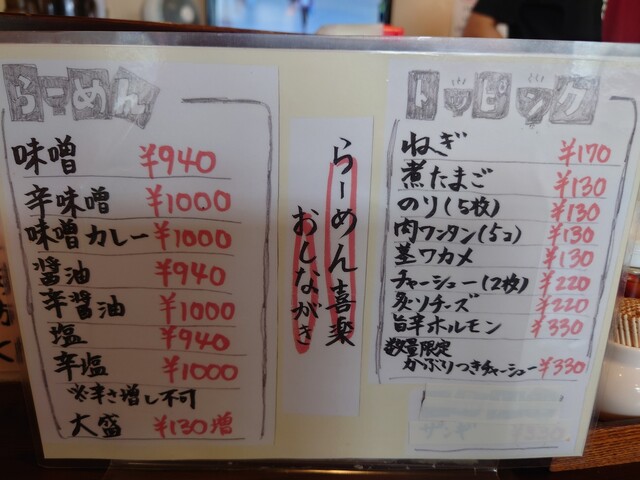 らーめん
味噌 ¥940
辛味噌 ¥1000
味噌カレー ¥1000
醤油 ¥940
辛醤油 ¥1000
塩 ¥940
辛塩 ¥1000
※辛さ増し不可
大盛 ¥130増
らーめん喜楽
おしながき
トッピング
ねぎ ¥170
煮たまご ¥130
のり(5枚) ¥130
肉ワンタン(5コ) ¥130
茎ワカメ ¥130
チャーシュー(2枚) ¥220
炙りチーズ ¥220
旨辛ホルモン ¥330
数量限定
かぶりつきチャーシュー ¥330
ザンギ